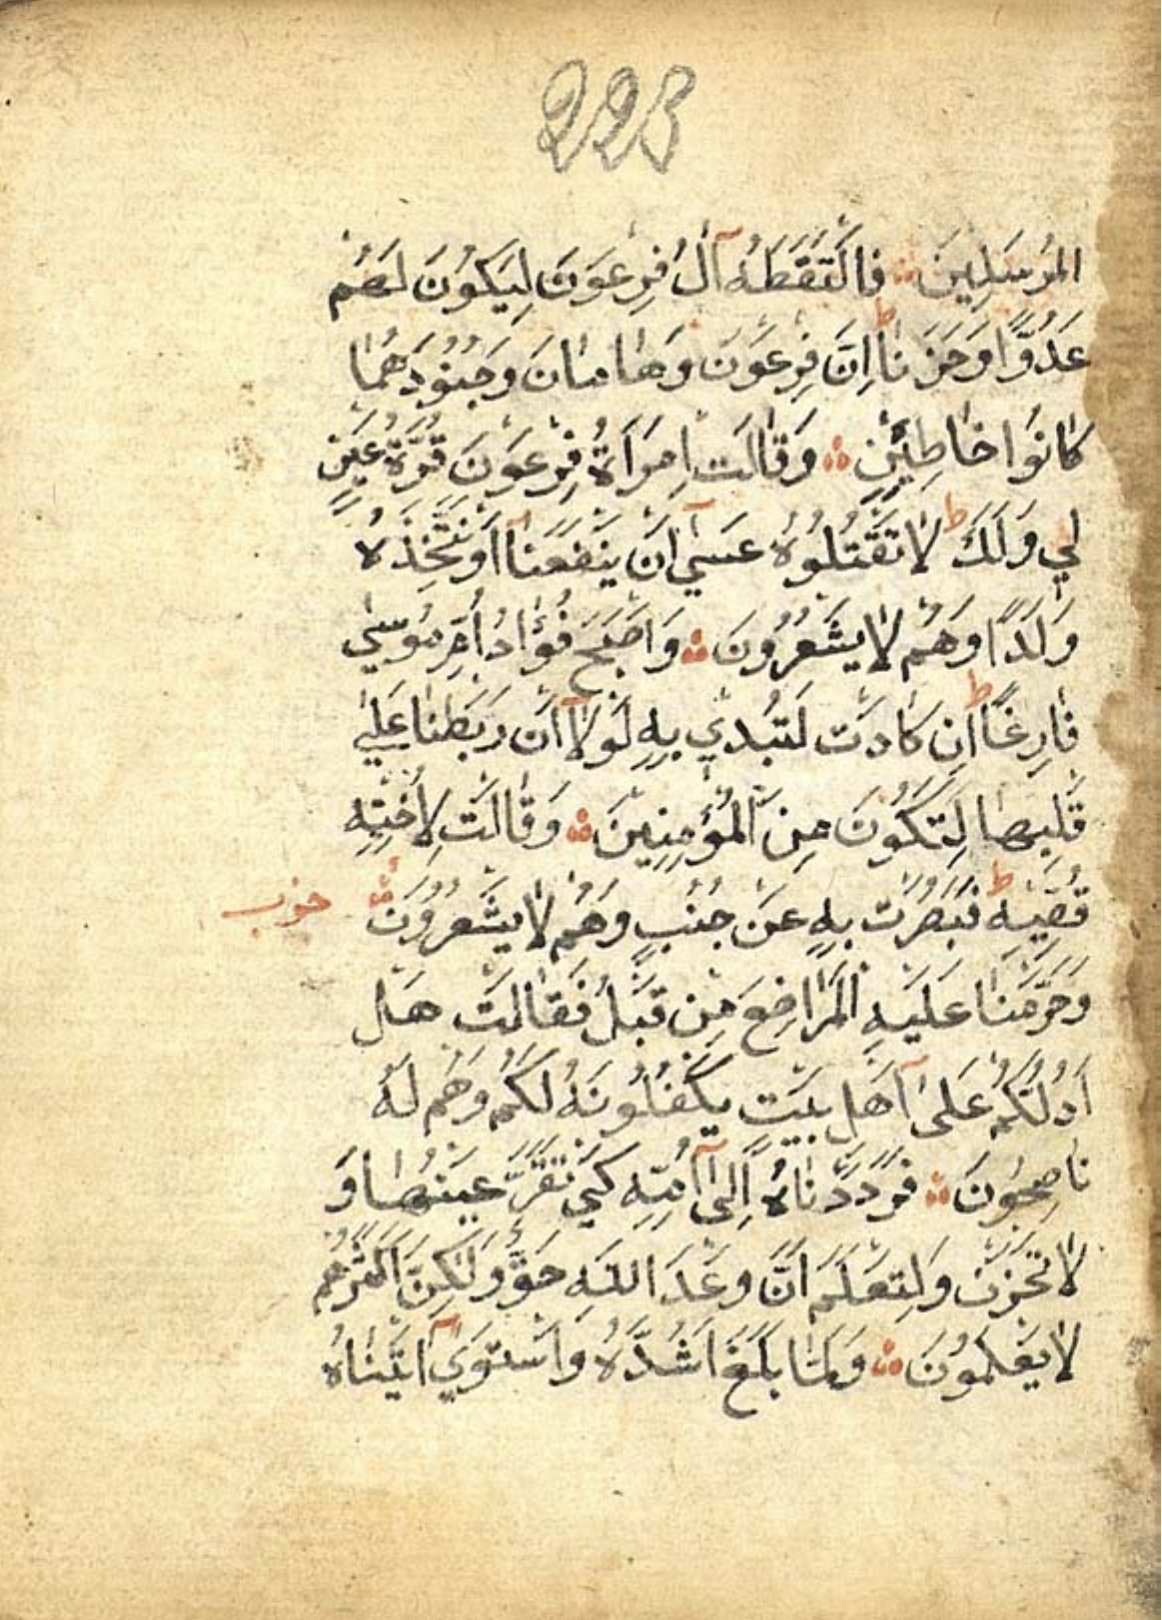 223
المُرْسَلِينَ ۞ فَالْتَقَطَهُ آلُ فِرْعَوْنَ لِيَكُونَ لَهُمْ
عَدُوًّا وَحَزَنًا ط اِنَّ فِرْعَوْنَ وَهَامَانَ وَجُنُودَهُمَا
كَانُوا خَاطِئِينَ ۞ وَقَالَتِ امْرَاَةُ فِرْعَوْنَ قُرَّةُ عَيْنٍ
لِي وَلَكَ ط لَا تَقْتُلُوهُ عَسٰٓي اَنْ يَنْفَعَنَآ اَوْ نَتَّخِذَهُ
وَلَدًا وَهُمْ لَا يَشْعُرُونَ ۞ وَاَصْبَحَ فُؤَادُ اُمِّ مُوسٰي
فَارِغًا ط اِنْ كَادَتْ لَتُبْدِي بِهِ لَوْلَآ اَنْ رَبَطْنَا عَلٰي
قَلْبِهَا لِتَكُونَ مِنَ الْمُؤْمِنِينَ ۞ وَقَالَتْ لِاُخْتِهِ
قُصِّيهِ ط فَبَصُرَتْ بِهِ عَنْ جُنُبٍ وَهُمْ لَا يَشْعُرُونَ ۞ حزب
وَحَرَّمْنَا عَلَيْهِ الْمَرَاضِعَ مِنْ قَبْلُ فَقَالَتْ هَلْ
اَدُلُّكُمْ عَلٰٓى اَهْلِ بَيْتٍ يَكْفُلُونَهُ لَكُمْ وَهُمْ لَهُ
نَاصِحُونَ ۞ فَرَدَدْنَاهُ اِلٰٓى اُمِّهِ كَيْ تَقَرَّ عَيْنُهَا وَ
لَا تَحْزَنَ وَلِتَعْلَمَ اَنَّ وَعْدَ اللّٰهِ حَقٌّ وَلٰكِنَّ اَكْثَرَهُمْ
لَا يَعْلَمُونَ ۞ وَلَمَّا بَلَغَ اَشُدَّهُ وَاسْتَوٰٓي اٰتَيْنَاهُ